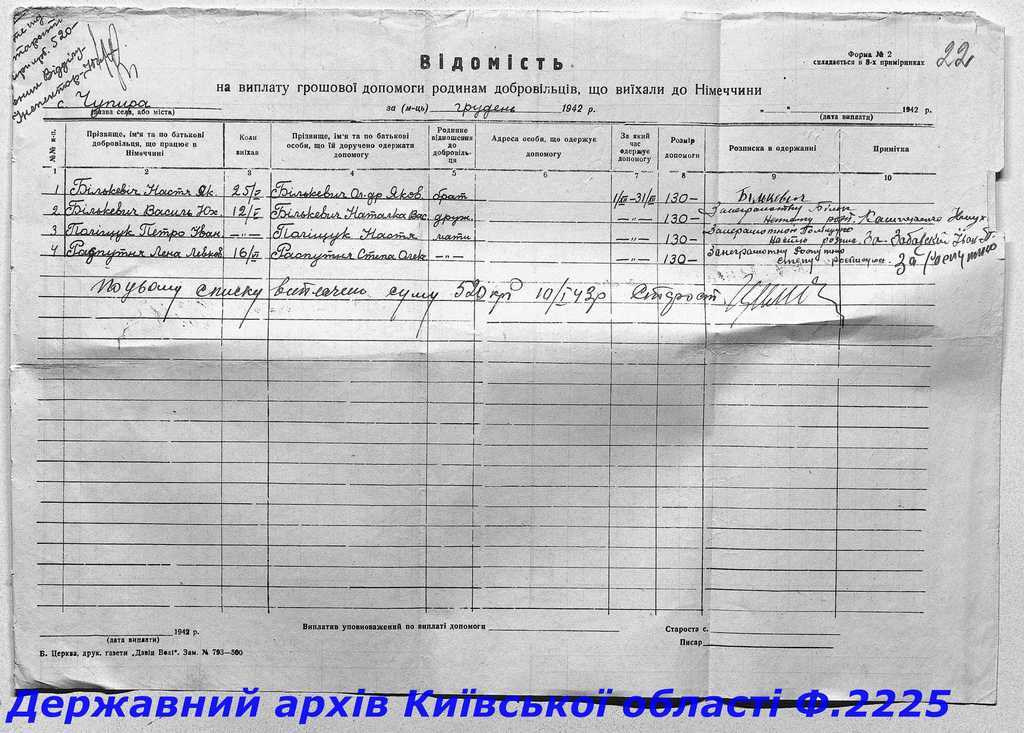 22
Форма № 2
складається в 3-х примірниках
Відомість
на виплату грошової допомоги родинам добровільців, що виїхали до Німеччини
с. Чупира
(назва села, або міста)
за (м-ць) грудень 1942 р.
" " 1942 р.
(дата виплати)
№№ п-п.
Прізвище, ім'я та по батькові добровільця, що працює в Німеччині
Коли виїхав
Прізвище, ім'я та по батькові особи, що їй доручено одержати допомогу
Родинне відношення до добровільця
Адреса особи, що одержує допомогу
За який час одержує допомогу
Розмір допомоги
Розписка в одержанні
Примітка
1 2 3 4 5 6 7 8 9 10
1 Бількевич Настя Як. 25/V Бількевич Ол-др Яков. брат 1/XII-31/XII 130-
2 Бількевич Василь Юх. 12/V Бількевич Наталка Вас. друж. -"- 130-
3 Поліщук Петро Іван. -"- Поліщук Настя мати -"- 130-
4 Распутня Лена Левков. 16/VI Распутня Степа Олек. -"- -"- 130-
По цьому списку виплачено суму 520 крб 10/I 43р Старост
1942 р.
(дата виплати)
Виплатив уповноважений по виплаті допомоги
Староста с.
Писар
Б. Церква, друк. газети „Дзвін Волі". Зам. № 793—500
Державний архів Київської області Ф.2225